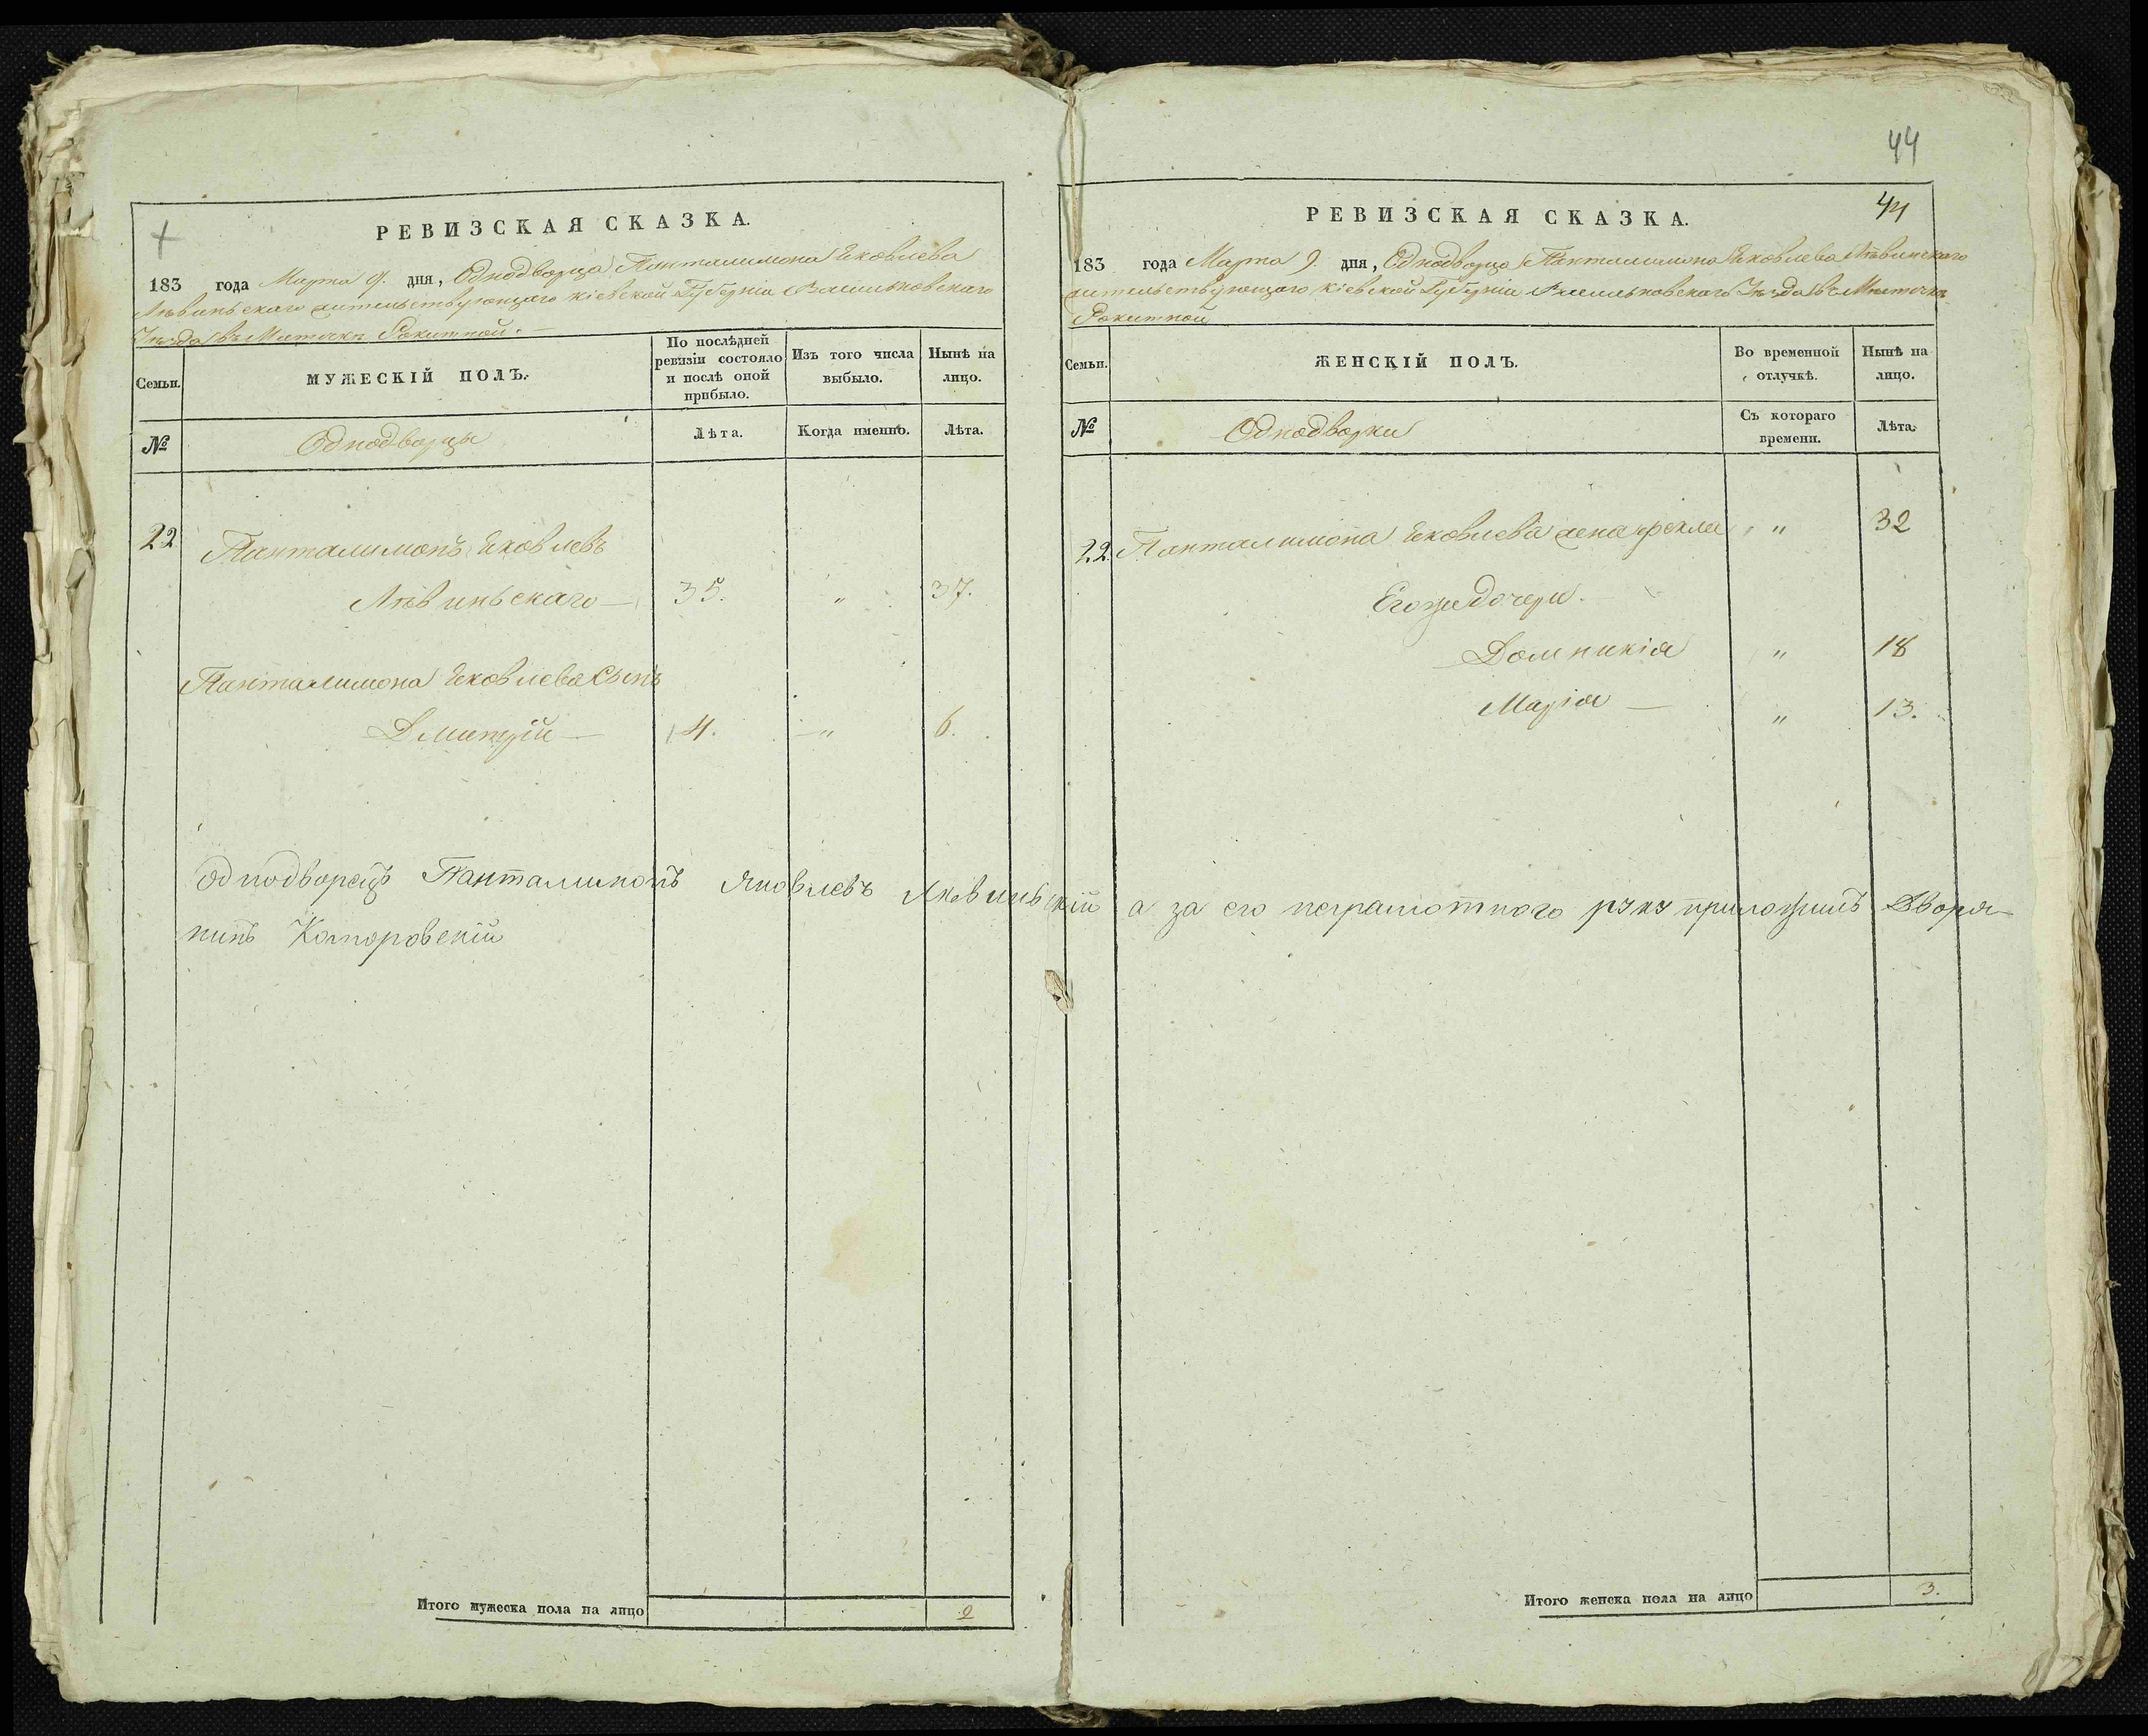 44
РЕВИЗСКАЯ СКАЗКА.
183 года Марта 9. дня, Однодворца Панталимона Яковлева
Лѣвинскаго жительствующаго Кіевской Губерніи Васильковскаго
Уѣзда въ Мѣстечкѣ Рокитной.
Семьи.
МУЖЕСКІЙ ПОЛЪ.
По послѣдней ревизіи состояло и послѣ оной прибыло.
Изъ того числа выбыло.
Нынѣ на лицо.
№
Однодворцы
Лѣта.
Когда именно.
Лѣта.
22
Панталимонъ Яковлевъ
Лѣвинскаго — 35. " 37.
Панталимона Яковлева Сынъ
Дмитрій — 4. " 6.
Однодворецъ Панталимонъ Яковлевъ Лѣвинскій а за его неграмотного руку приложилъ Дворя-
нинъ Коморовскій
Итого мужеска пола на лицо 2
44
РЕВИЗСКАЯ СКАЗКА.
183 года Марта 9. дня, Однодворца Панталимона Яковлева Лѣвинскаго
жительствующаго Кіевской Губерніи Васильковскаго Уѣзда въ Мѣстечкѣ
Рокитной
Семьи.
ЖЕНСКІЙ ПОЛЪ.
Во временной отлучкѣ.
Нынѣ на лицо.
№
Однодворки
Съ котораго времени.
Лѣта.
22. Панталимона Яковлева жена Фекла " 32
Егоже дочери.
Домникія " 18
Марія — " 13.
Итого женска пола на лицо 3.